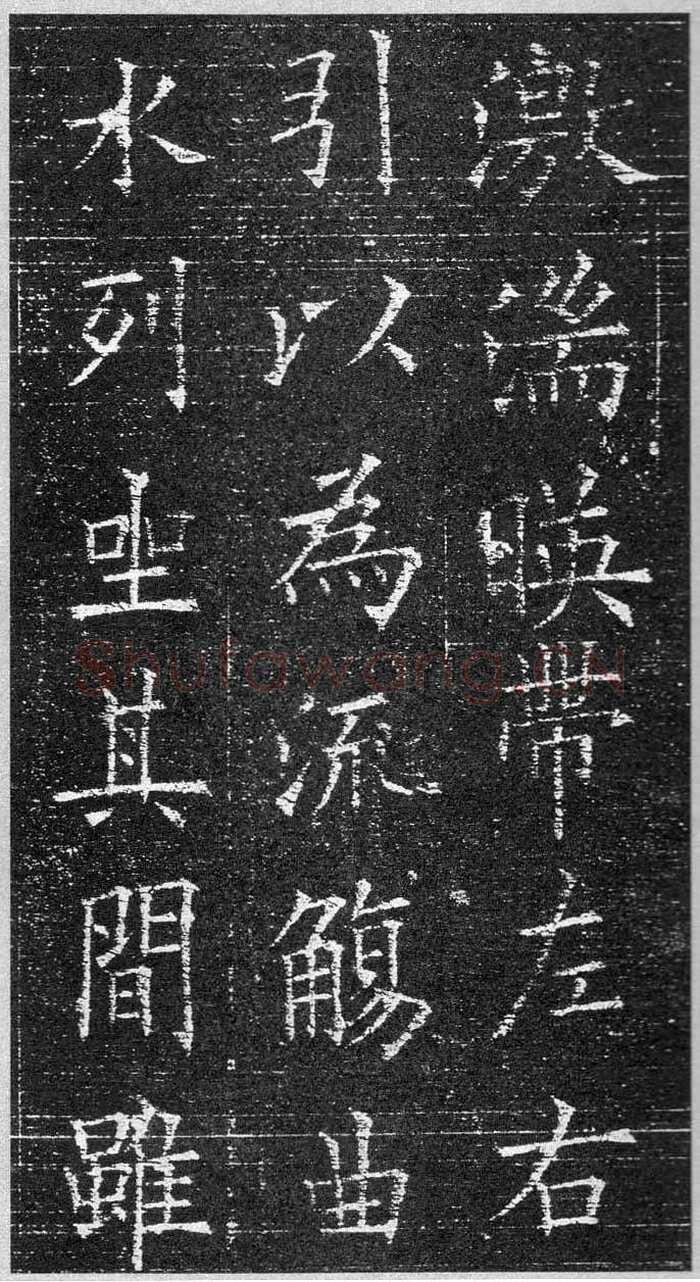 激湍暎帶左右
引以為流觴曲
水列坐其間雖
Shufawang.CN